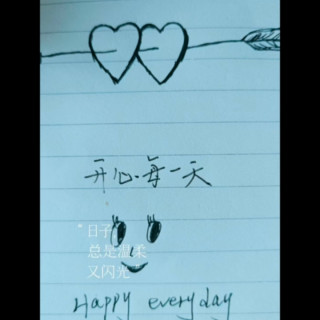 开心每一天
"日子
总是温柔
又闪光
Happy everyday